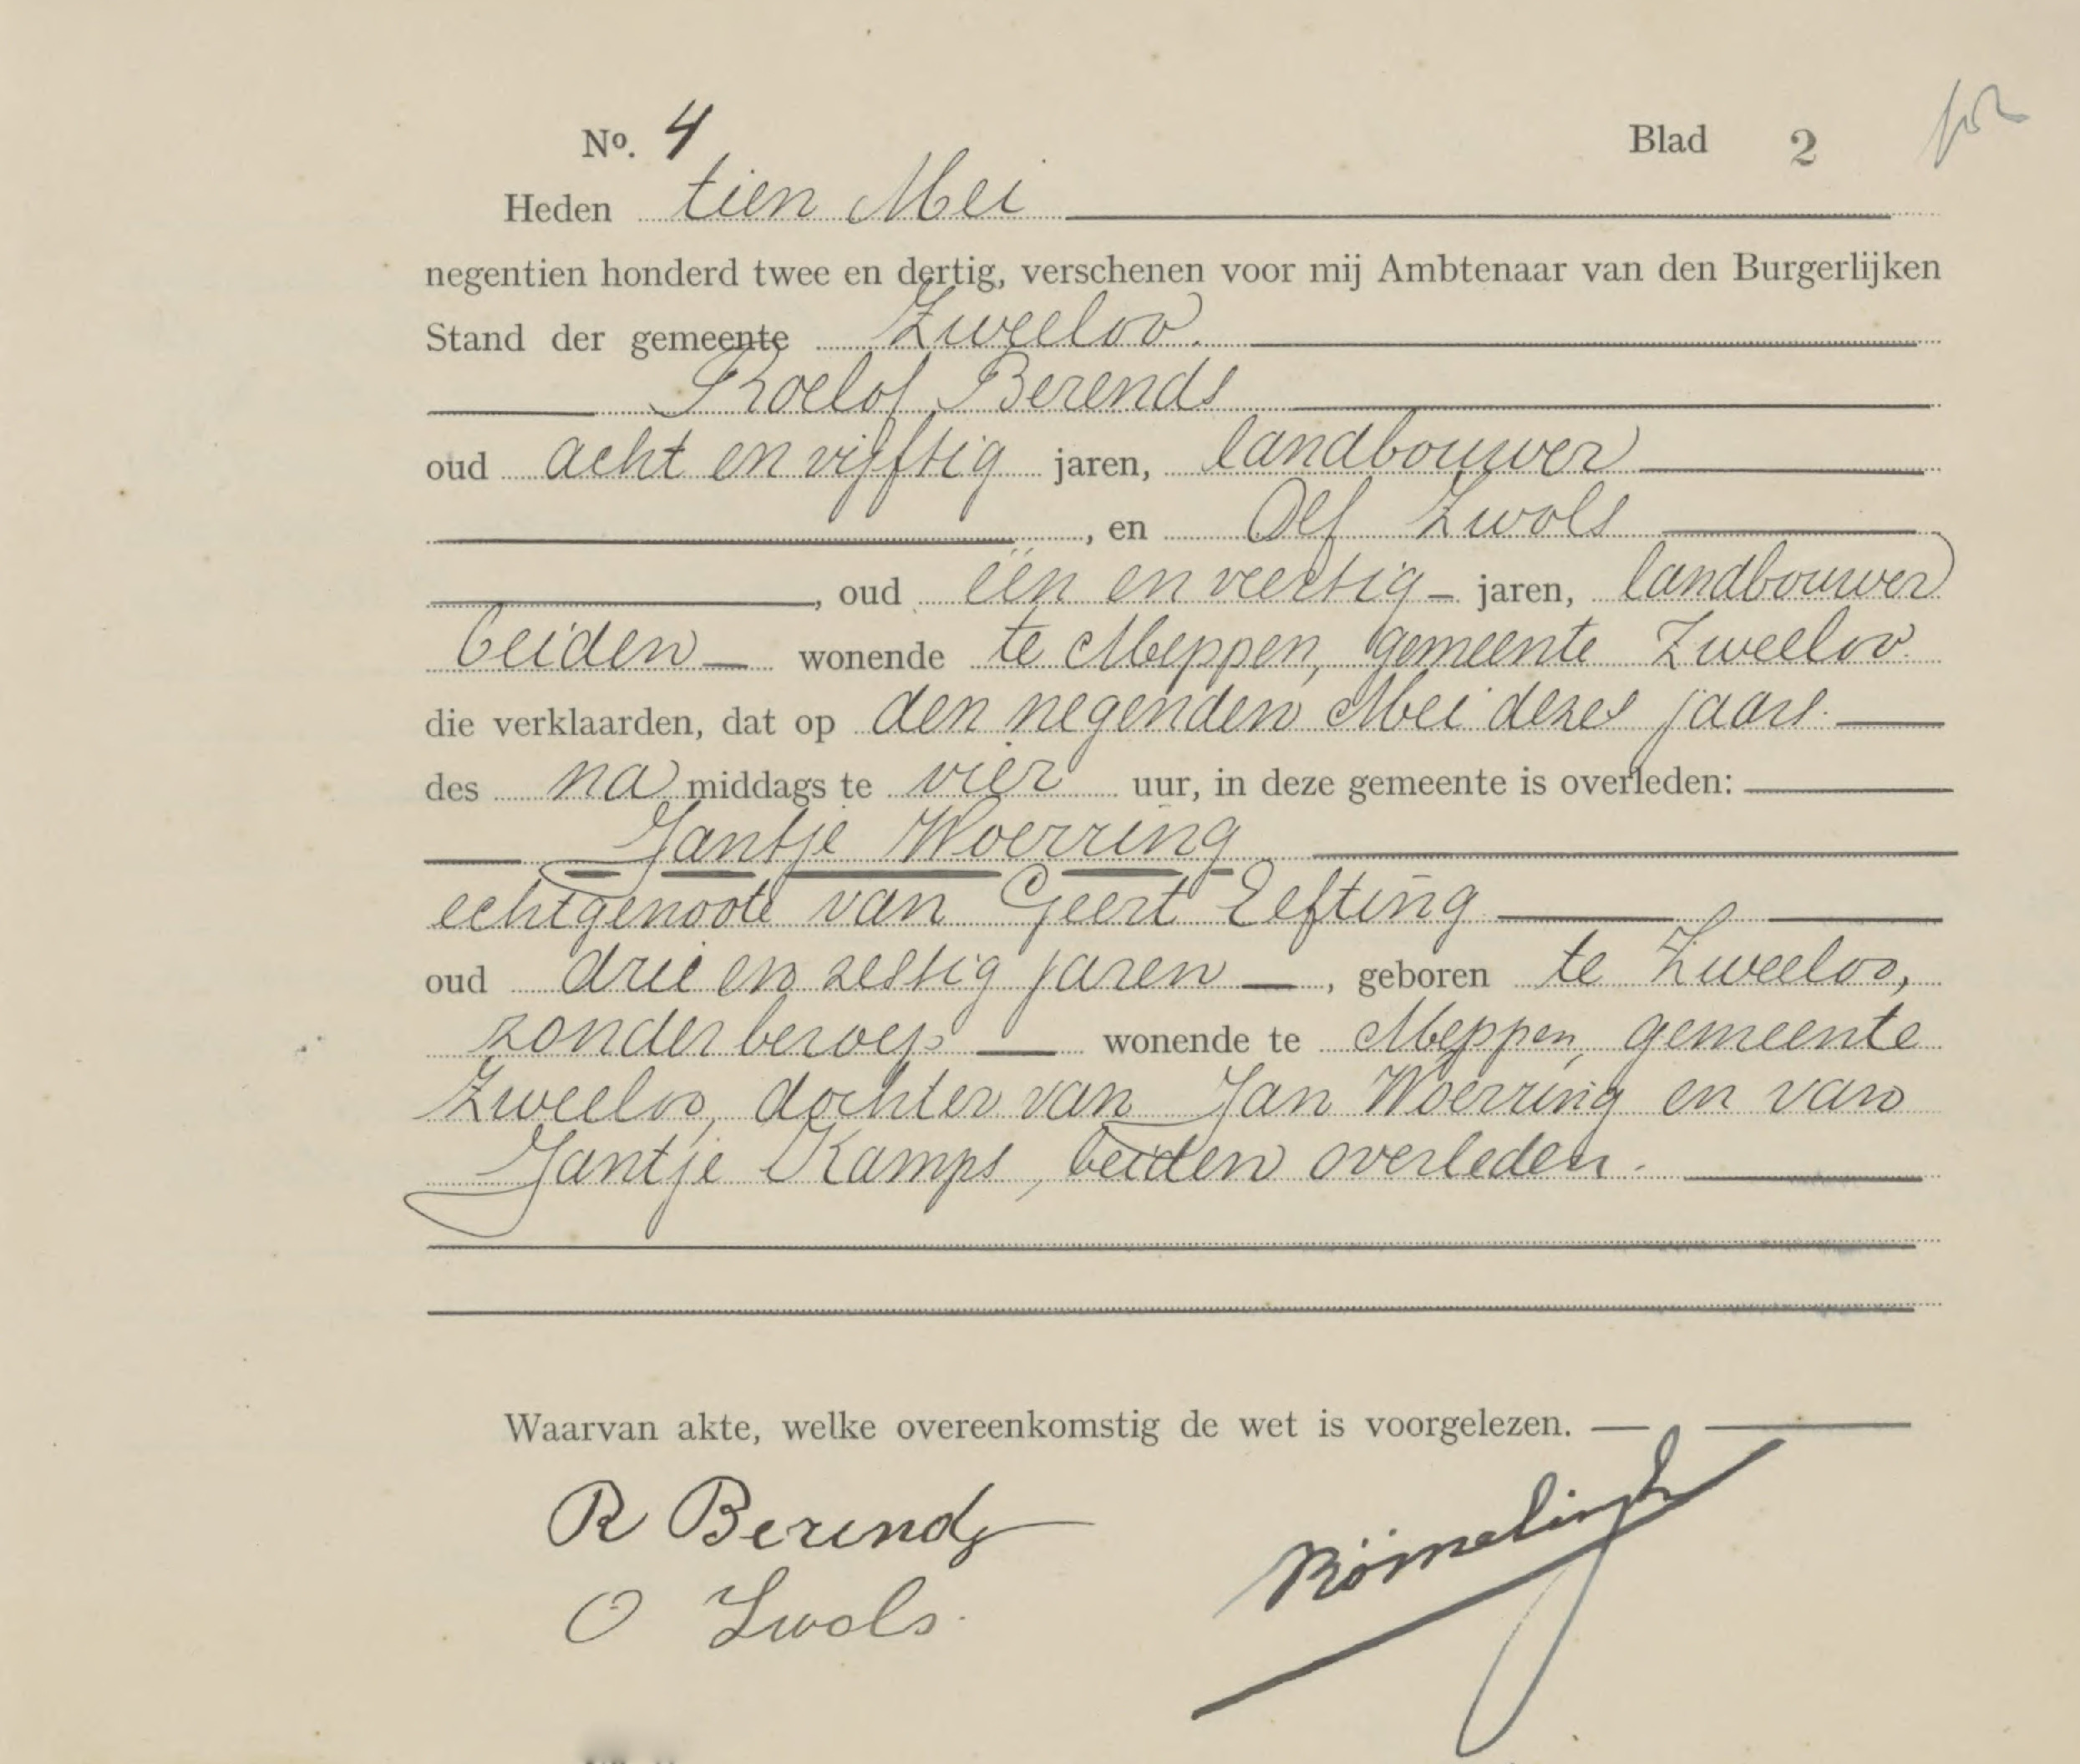 No. 4 Blad 2
Heden tien Mei
negentien honderd twee en dertig, verschenen voor mij Ambtenaar van den Burgerlijken
Stand der gemeente Zweeloo.
Roelof Berends
oud acht en vijftig jaren, landbouwer
, en Olf Zwols
, oud één en veertig jaren, landbouwer
beiden wonende te Meppen, gemeente Zweeloo
die verklaarden, dat op den negenden Mei dezes jaars.
des na middags te vier uur, in deze gemeente is overleden:
Jantje Woerring
echtgenoote van Geert Eefting
oud drie en zestig jaren, geboren te Zweeloo,
zonder beroep wonende te Meppen, gemeente
Zweeloo, dochter van Jan Woerring en van
Jantje Kamps, beiden overleden.
Waarvan akte, welke overeenkomstig de wet is voorgelezen.
R Berends
O Zwols.